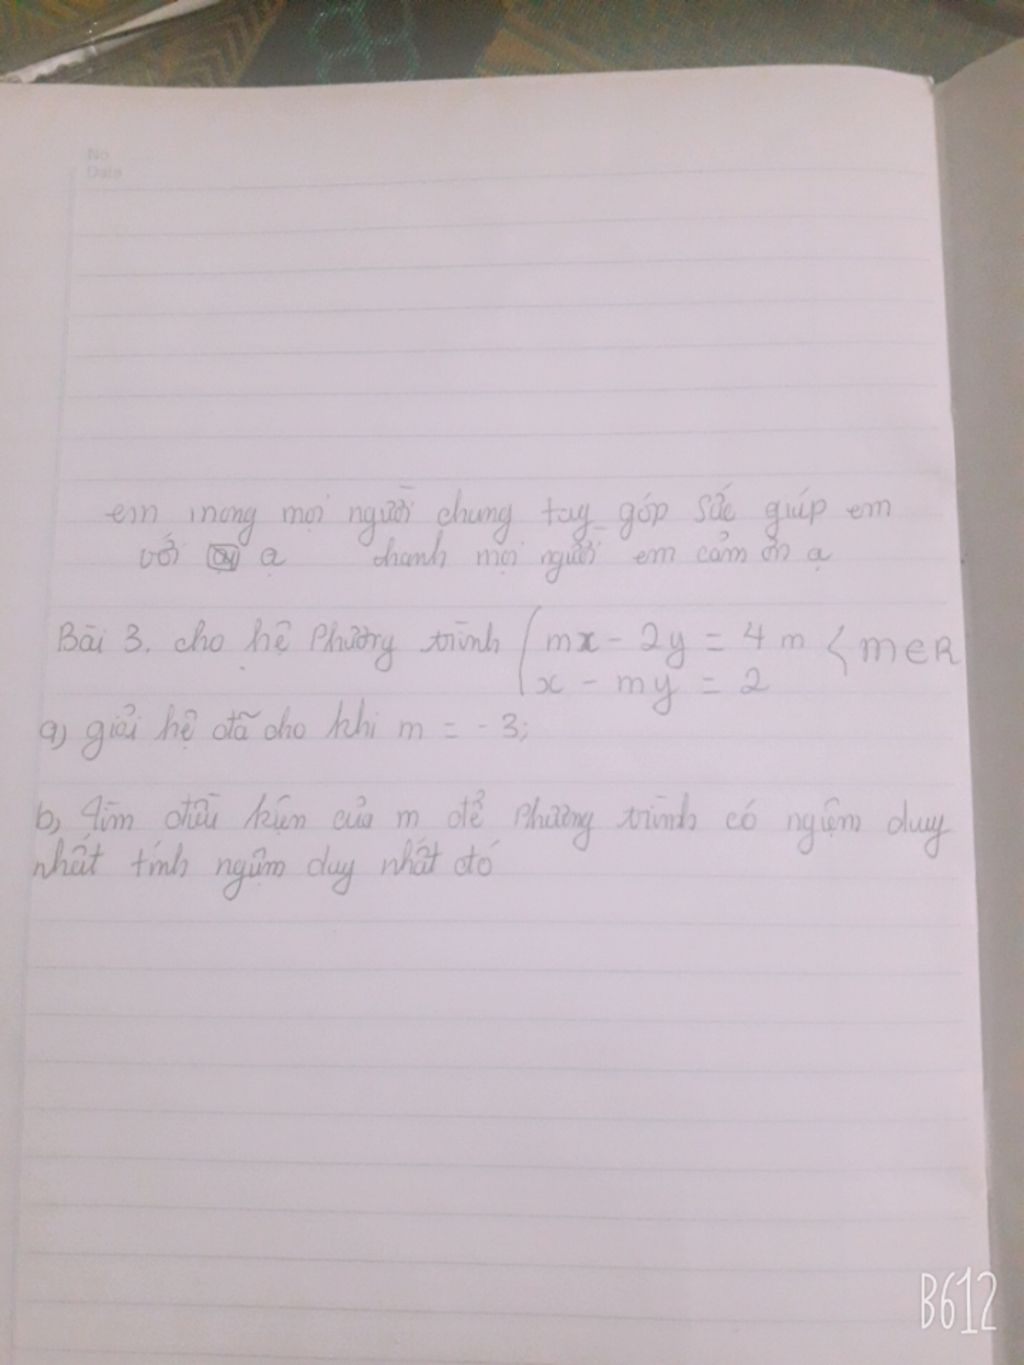 No
Date
em mong mọi người chung tay góp sắc giúp em
với ạ chanh mọi người em cảm ơn ạ
Bài 3. cho hệ Phương trình { mx - 2y = 4 m < m ∈ R
x - my = 2
a) giải hệ đã cho khi m = - 3;
b, Tìm điều kiện của m để Phương trình có ngiệm duy
nhất tính ngiệm duy nhất đó
B612